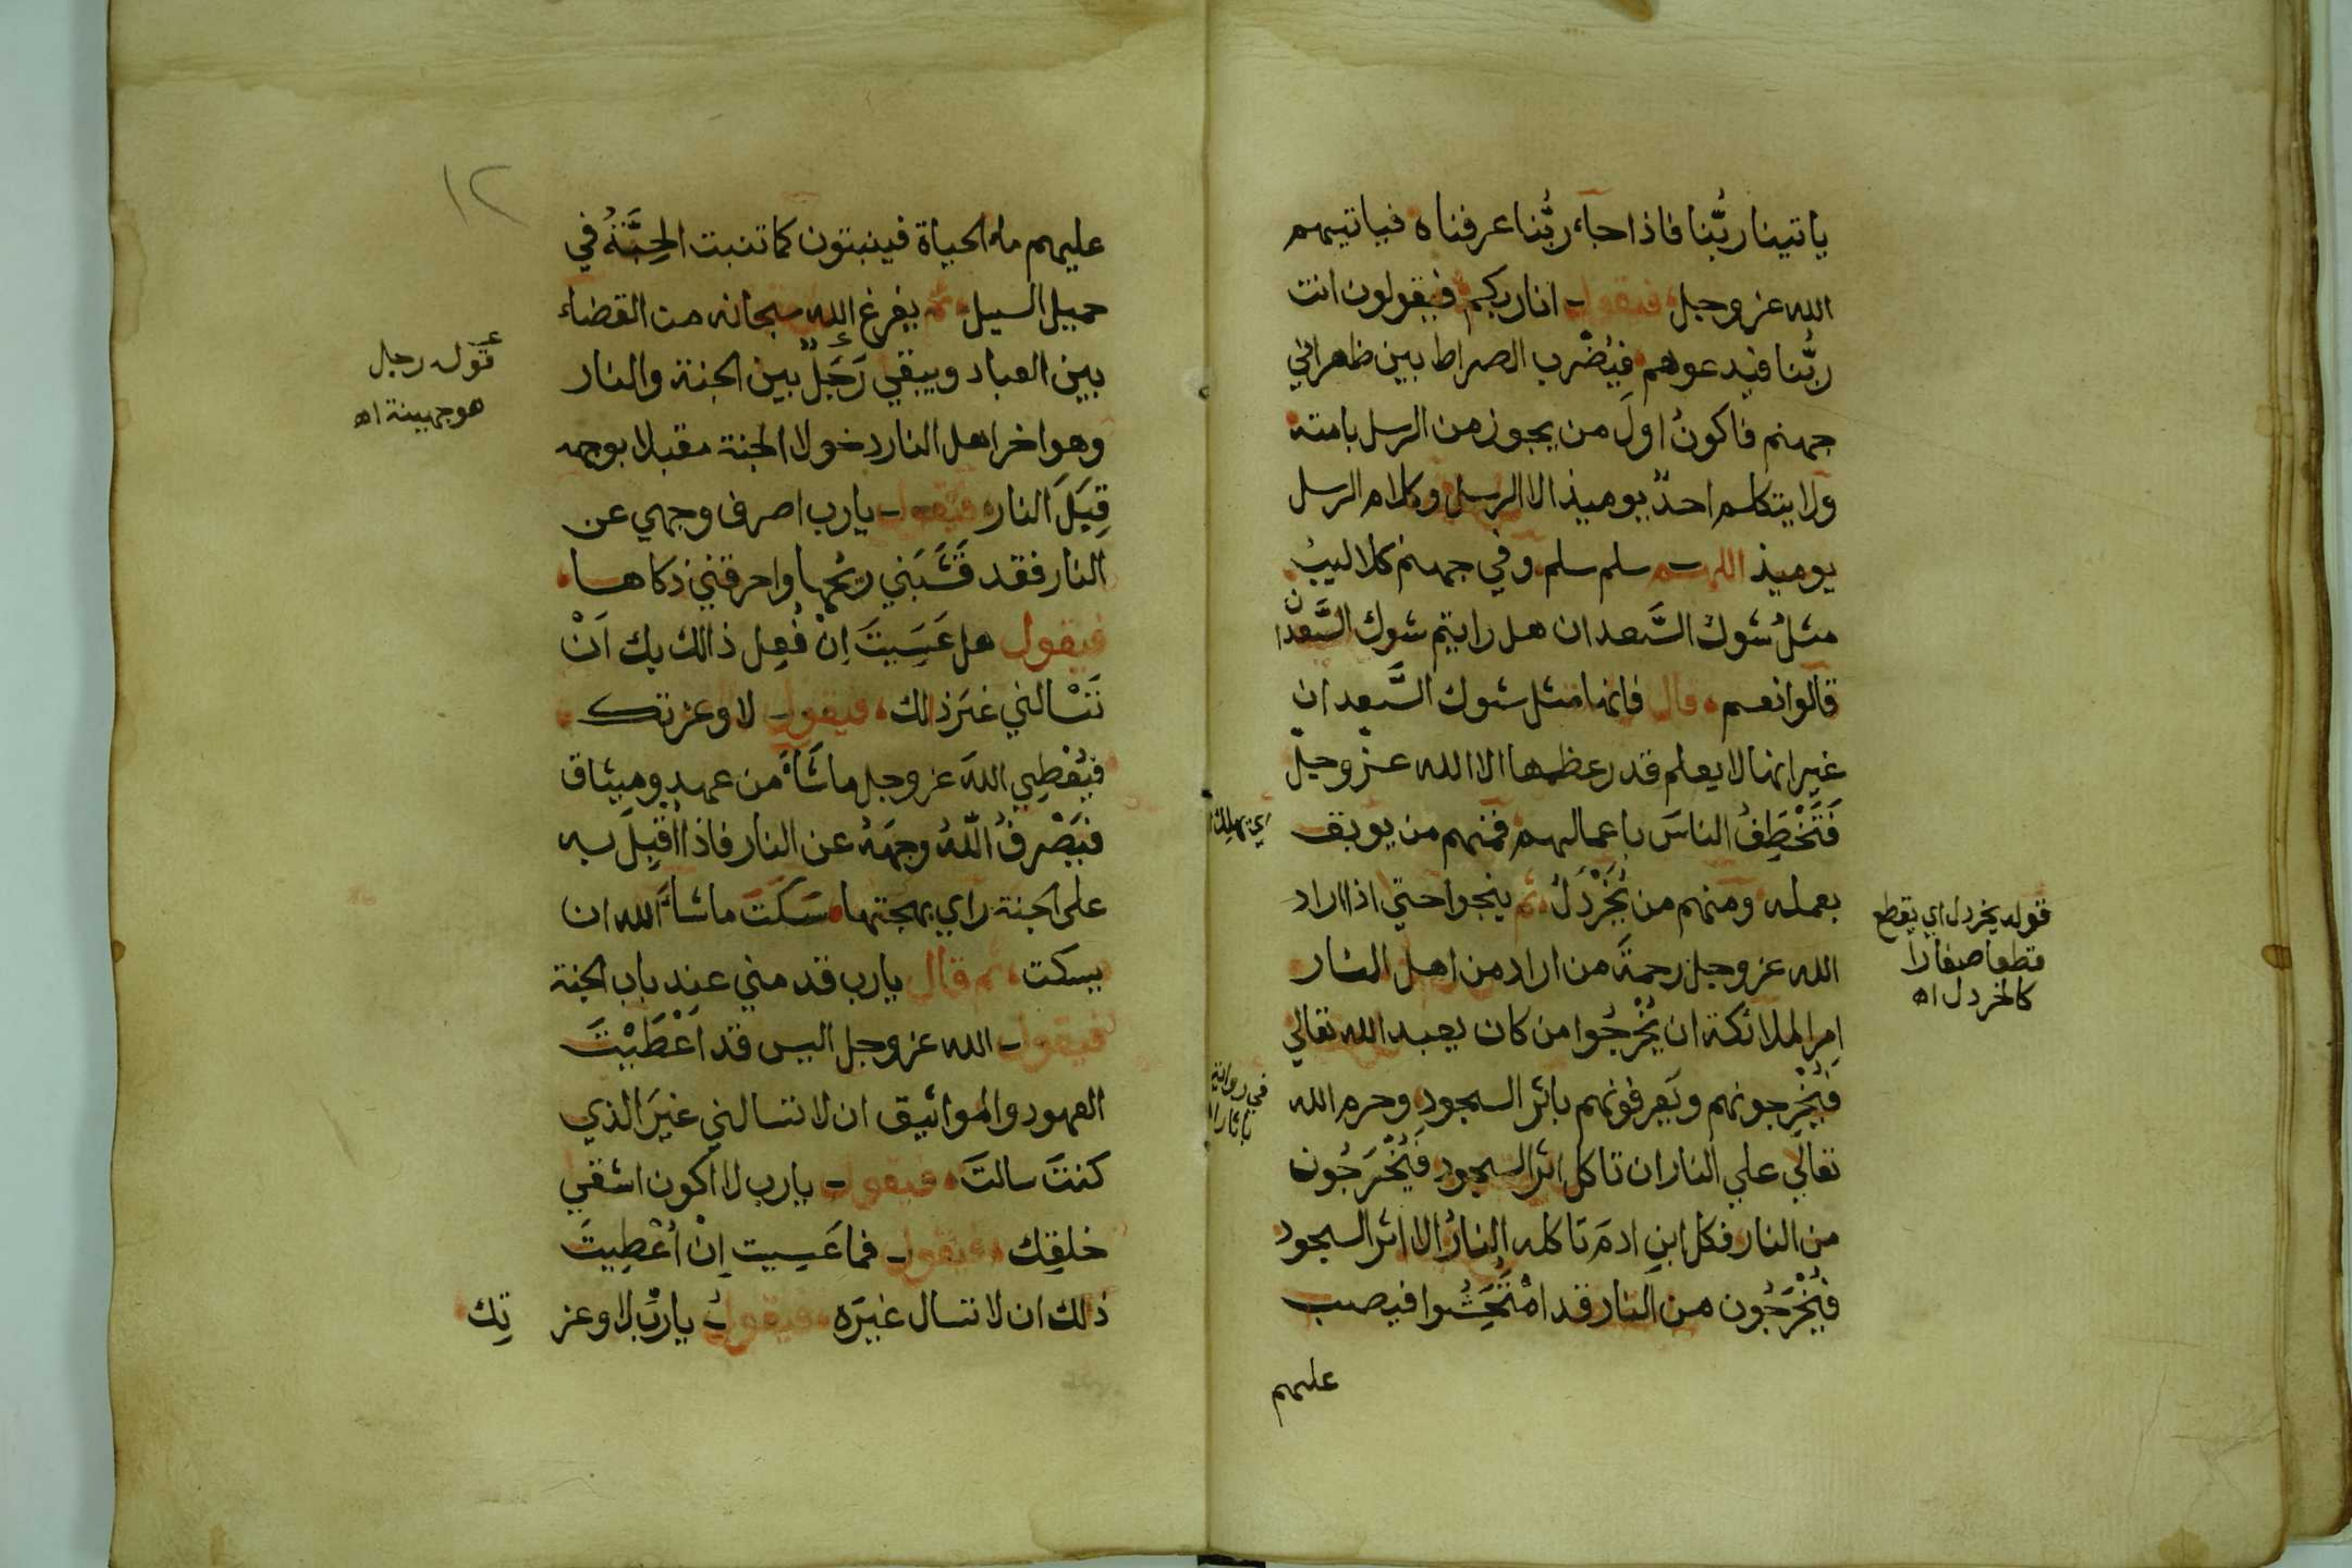 ياتينا ربُّنا فاذا جاء ربُّنا عرفناه فياتيهم
الله عز وجل فيقول انا ربكم فيقولون انت
ربُّنا فيدعوهم فيُضْرب الصراط بين ظهراني
جهنم فاكونُ اولَ من يجوز من الرسل بامته
ولا يتكلم احدٌ يوميذ الا الرسل وكلام الرسل
يوميذ اللهم سلم سلم وفي جهنم كلاليبُ
مثلُ شوك السَّعدان هل رايتم شوك السَّعدان
قالوا نعم قال فانها مثل شوك السَّعدان
غير انها لا يعلم قدر عظمها الا الله عز وجل
فَتَخْطَفُ الناسَ باعمالهم فمنهم من يوبق
اي يهلك
بعمله ومنهم من يُخَرْدَلُ ثم ينجوا حتي اذا اراد
قوله يخردل اي يقطع
قطعا صغارا
كالخردل اه
الله عز وجل رحمةَ من اراد من اهل النار
امر الملائكة ان يُخْرِجُوا من كان يعبد الله تعالي
فيُخْرِجونهم ويَعرفونهم باثر السجود وحرم الله
في رواية
باثار
تعالي علي النار ان تاكل اثر السجود فَيُخْرَجُون
من النار فكل ابنِ ادمَ تاكله النارُ الا اثر السجود
فيُخْرَجُون من النار قد امْتَحَشُوا فيصب
عليهم
١٢
عليهم ماء الحياة فينبتون كما تنبت الحِبَّةُ في
حميل السيل ثم يفرغ الله سبحانه من القضاء
بين العباد ويبقي رَجُلٌ بين الجنة والنار
قوله رجل
هو جهينة اه
وهو اخر اهل النار دخولا الجنة مقبلا بوجهه
قِبَلَ النار فيقول يارب اصرف وجهي عن
النار فقد قَشَبَني ريحُها واحرقني ذكاها
فيقول هل عَسَيتَ اِنْ فُعِل ذالك بك اَنْ
تَسْالني غيرَ ذلك فيقول لا وعزتك
فيُعْطِي اللهَ عز وجل ماشَاءَ من عهدٍ وميثاق
فيَصْرفُ اللّهُ وجهَهُ عن النار فاذا اُقْبِلَ به
على الجنة راي بهجتها سَكَتَ ماشاءَ الله ان
يسكت ثم قال يارب قدمني عند باب الجنة
فيقول الله عز وجل اليس قد اَعْطَيْتَ
العهود والمواثيق ان لا تسالني غيرَ الذي
كنتَ سالتَ فيقول يارب لا اكون اشقي
خلقِك فيقول فما عَسِيت اِنْ اُعْطِيتَ
ذلك ان لا تسال غيرَه فيقولُ ياربّ لا وعز تِك